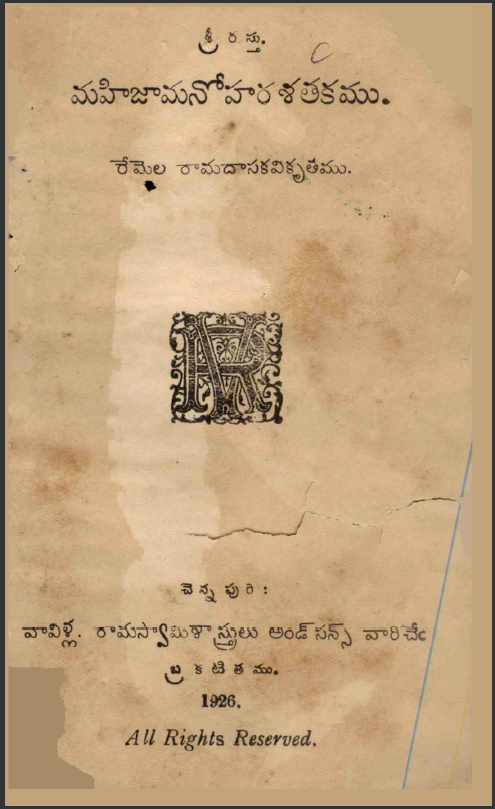 శ్రీ ర స్తు.
మహిజామనోహరశతకము.
రేమెల రామదాసకవికృతము.
చెన్న పురి :
వావిళ్ల. రామస్వామిశాస్త్రులు అండ్ సన్స్ వారిచేఁ
బ్ర క టి త ము.
1926.
All Rights Reserved.